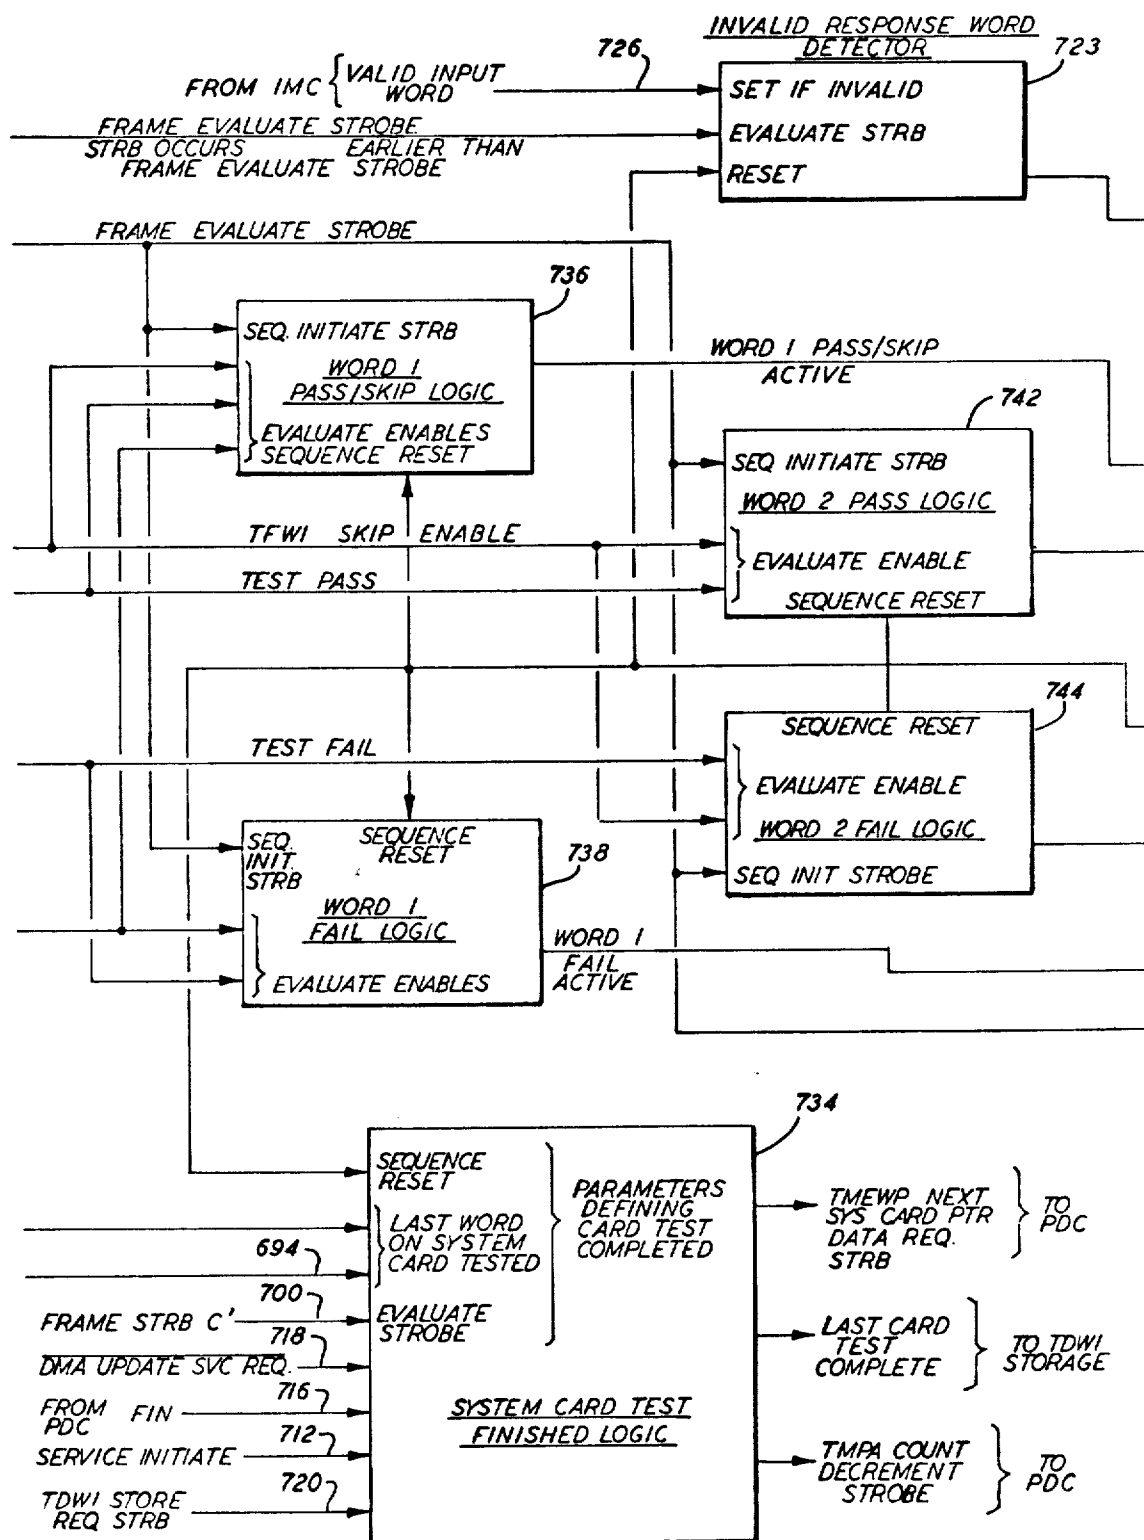 INVALID RESPONSE WORD
DETECTOR
726
723
FROM IMC { VALID INPUT
WORD
SET IF INVALID
FRAME EVALUATE STROBE
STRB OCCURS EARLIER THAN
FRAME EVALUATE STROBE
EVALUATE STRB
RESET
FRAME EVALUATE STROBE
736
SEQ. INITIATE STRB
WORD 1
PASS/SKIP LOGIC
EVALUATE ENABLES
SEQUENCE RESET
WORD 1 PASS/SKIP
ACTIVE
742
SEQ INITIATE STRB
WORD 2 PASS LOGIC
EVALUATE ENABLE
SEQUENCE RESET
TFWI SKIP ENABLE
TEST PASS
744
SEQUENCE RESET
EVALUATE ENABLE
WORD 2 FAIL LOGIC
SEQ INIT STROBE
TEST FAIL
738
SEQ.
INIT.
STRB
SEQUENCE
RESET
WORD 1
FAIL LOGIC
EVALUATE ENABLES
WORD 1
FAIL
ACTIVE
734
SEQUENCE
RESET
LAST WORD
ON SYSTEM
CARD TESTED
EVALUATE
STROBE
PARAMETERS
DEFINING
CARD TEST
COMPLETED
SYSTEM CARD TEST
FINISHED LOGIC
694
FRAME STRB C' 700
DMA UPDATE SVC REQ. 718
FROM
PDC FIN 716
SERVICE INITIATE 712
TDWI STORE
REQ STRB 720
TMEWP NEXT
SYS CARD PTR
DATA REQ.
STRB
TO
PDC
LAST CARD
TEST
COMPLETE
TO TDWI
STORAGE
TMPA COUNT
DECREMENT
STROBE
TO
PDC